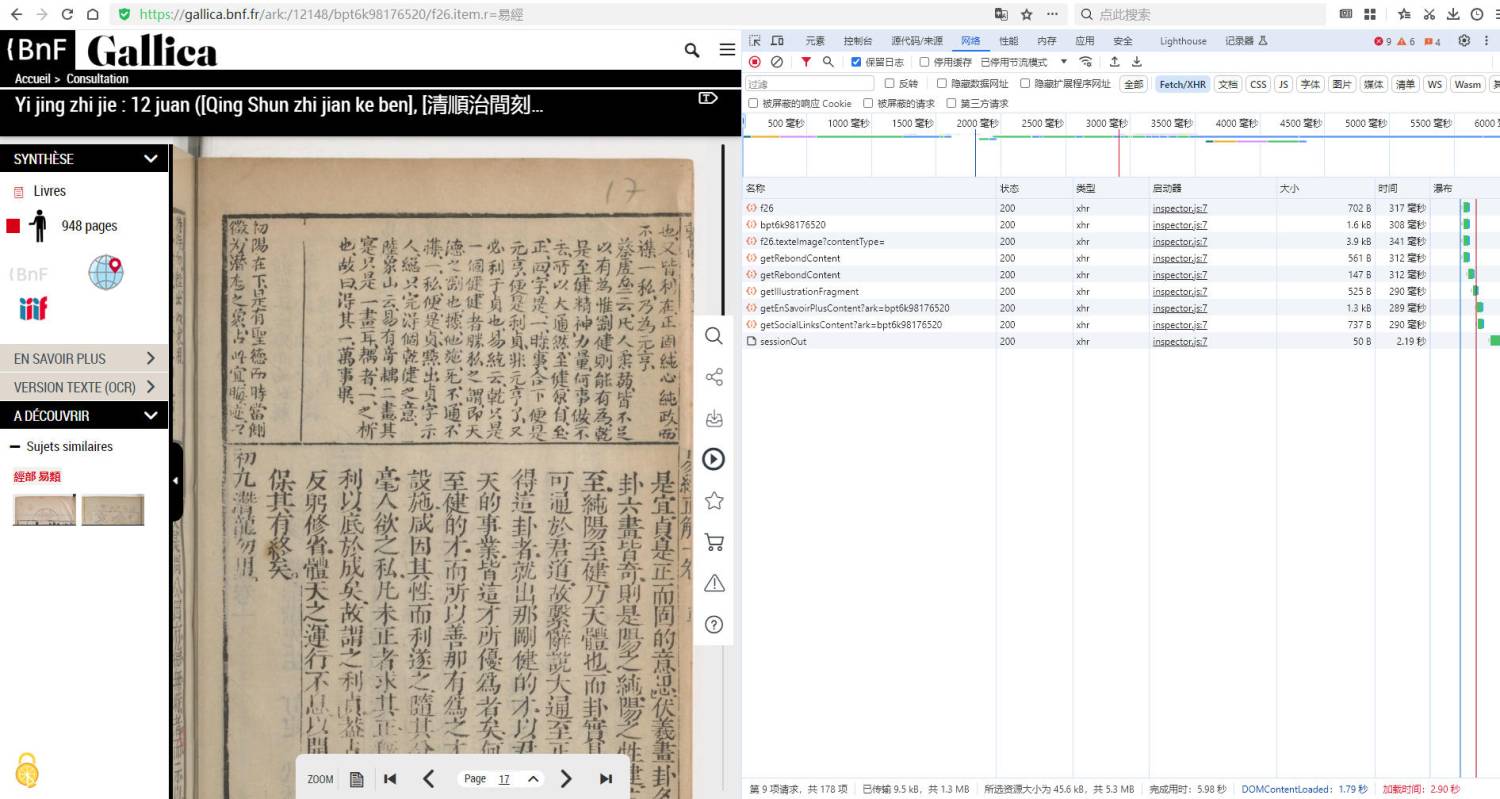 https://gallica.bnf.fr/ark:/12148/bpt6k98176520/f26.item.r=易經
点此搜索
{BnF Gallica
Accueil > Consultation
Yi jing zhi jie : 12 juan ([Qing Shun zhi jian ke ben], [清順治間刻...
SYNTHÈSE
Livres
948 pages
{BnF
iiif
EN SAVOIR PLUS
VERSION TEXTE (OCR)
A DÉCOUVRIR
Sujets similaires
經部 易類
17
也又皆利在正固純心純政而
不襍一私乃為元亨
蔡虛齋云凡人柔弱皆不足
以有為惟剛健則能有為乾
是至健精神力量何事做不
去所以大通然至健須自至
正四字是一時事合下便是
元亨便是利貞非元亨了又
必利于貞也易統云乾只是
一個健健者勝私之謂即天
德之剛也據他施不通不
襍一私便是貞點出貞字示
人總只完得個乾健之意
陸象山云易有奇耦二畫其
寔只是一畫耳耦者一之析
也故曰得其一萬事畢
初陽在下是有聖德而時當側
微為潛之象占宜晦
是宜貞是正而固的意思伏羲畫
卦六畫皆奇則是陽之純陽之性健
至純陽至健乃天體也而卦實具
可通於君道故繫辭說大通至正
得這卦者就出那剛健的才以君
天的事業皆這才所優為者矣何
至健的才而所以善那有為之才
設施咸因其性而利遂之隨其分
毫人欲之私凡未正者求其正
利以底於成矣故謂之利貞蓋占
反躬修省體天之運行不息以開
保其有終矣
初九潛龍勿用
ZOOM
Page 17
元素 控制台 源代码/来源 网络 性能 内存 应用 安全 Lighthouse 记录器 9 6 4
保留日志 停用缓存 已停用节流模式
过滤 反转 隐藏数据网址 隐藏扩展程序网址 全部 Fetch/XHR 文档 CSS JS 字体 图片 媒体 清单 WS Wasm
被屏蔽的响应 Cookie 被屏蔽的请求 第三方请求
500 毫秒 1000 毫秒 1500 毫秒 2000 毫秒 2500 毫秒 3000 毫秒 3500 毫秒 4000 毫秒 4500 毫秒 5000 毫秒 5500 毫秒 6000
名称 状态 类型 启动器 大小 时间 瀑布
f26 200 xhr inspector.js:7 702 B 317 毫秒
bpt6k98176520 200 xhr inspector.js:7 1.6 kB 308 毫秒
f26.texteImage?contentType= 200 xhr inspector.js:7 3.9 kB 341 毫秒
getRebondContent 200 xhr inspector.js:7 561 B 312 毫秒
getRebondContent 200 xhr inspector.js:7 147 B 312 毫秒
getIllustrationFragment 200 xhr inspector.js:7 525 B 290 毫秒
getEnSavoirPlusContent?ark=bpt6k98176520 200 xhr inspector.js:7 1.3 kB 289 毫秒
getSocialLinksContent?ark=bpt6k98176520 200 xhr inspector.js:7 737 B 290 毫秒
sessionOut 200 xhr inspector.js:7 50 B 2.19 秒
第 9 项请求，共 178 项 已传输 9.5 kB，共 1.3 MB 所选资源大小为 45.6 kB，共 5.3 MB 完成用时：5.98 秒 DOMContentLoaded：1.79 秒 加载时间：2.90 秒